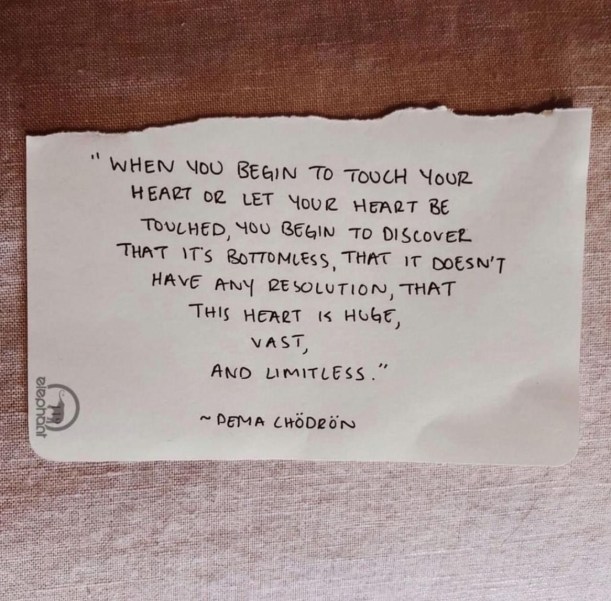 " WHEN YOU BEGIN TO TOUCH YOUR
HEART OR LET YOUR HEART BE
TOUCHED, YOU BEGIN TO DISCOVER
THAT IT'S BOTTOMLESS, THAT IT DOESN'T
HAVE ANY RESOLUTION, THAT
THIS HEART IS HUGE,
VAST,
AND LIMITLESS."
~ PEMA CHÖDRÖN
elephant